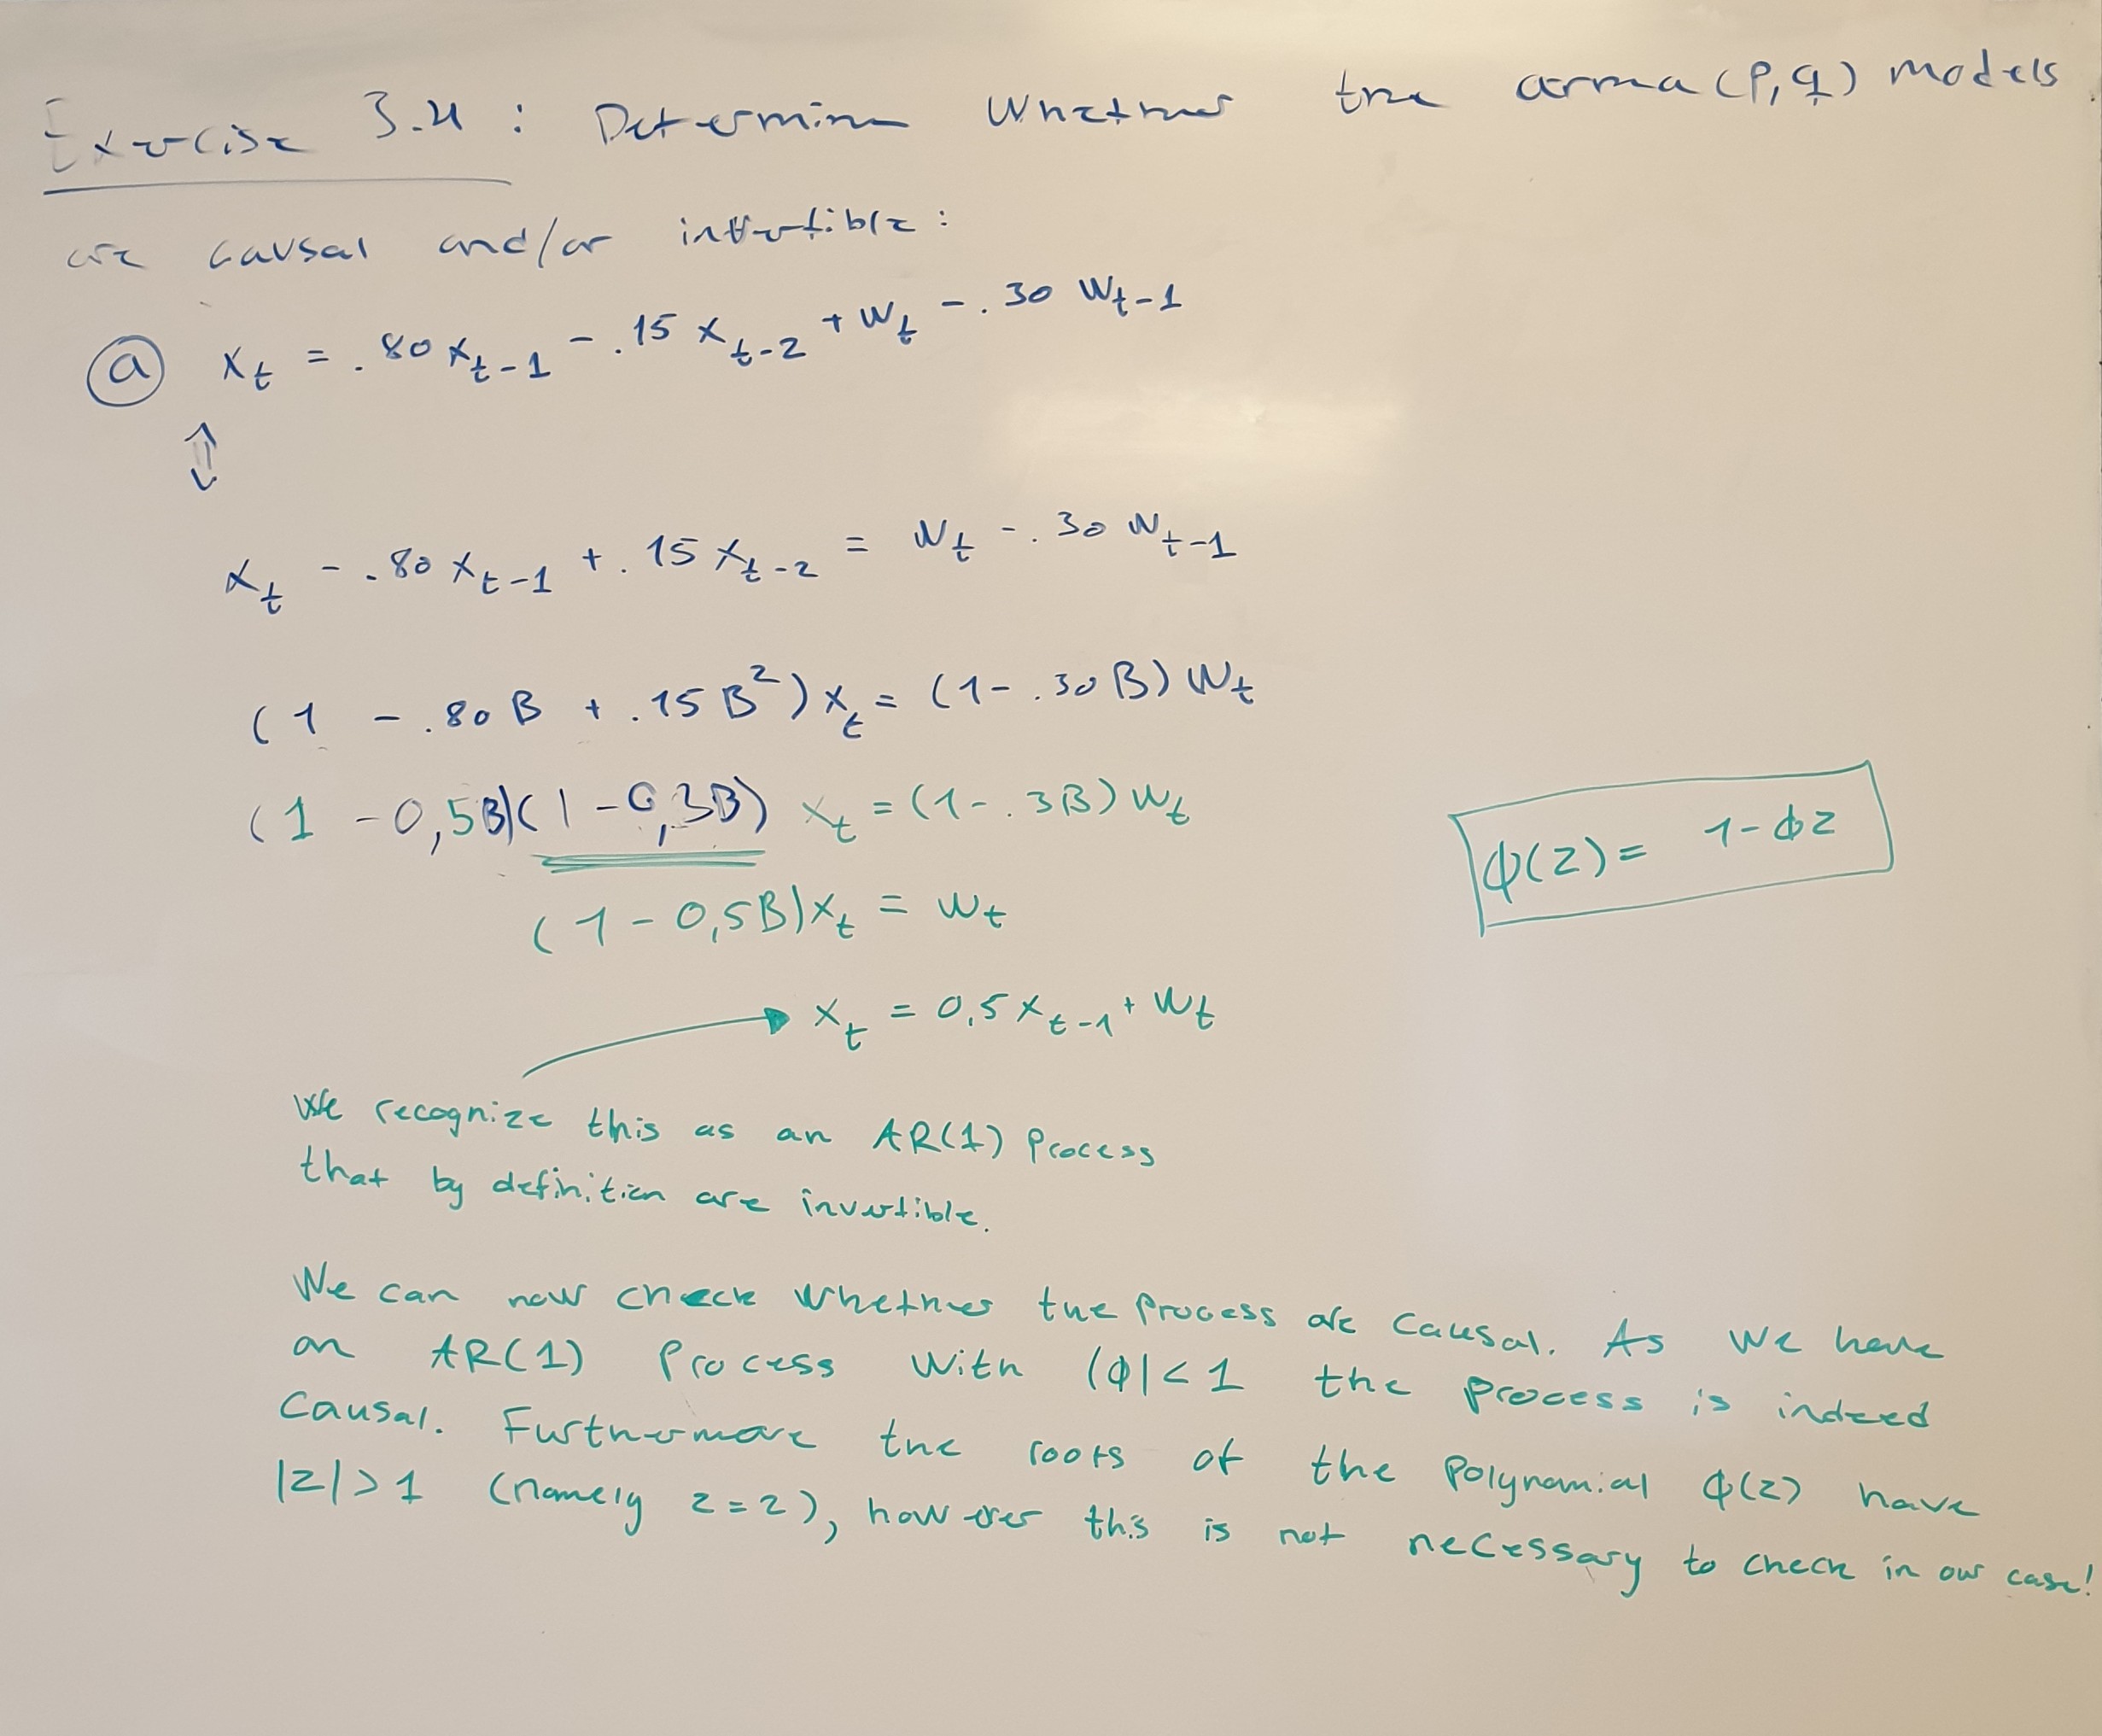 Exercise 3.4 : Determine Whether the arma(P,q) models
are causal and/or invertible :
ⓐ x_t = .80 x_{t-1} - .15 x_{t-2} + w_t - .30 w_{t-1}
⇕
x_t - .80 x_{t-1} + .15 x_{t-2} = w_t - .30 w_{t-1}
(1 - .80 B + .15 B²) x_t = (1 - .30 B) w_t
(1 - 0,5B)(1 - 0,3B) x_t = (1 - .3B) w_t
ϕ(z) = 1-ϕz
(1 - 0,5B) x_t = w_t
x_t = 0,5 x_{t-1} + w_t
We recognize this as an AR(1) Process
that by definition are invertible.
We can now check Whether the Process are causal. As We have
an AR(1) Process With |ϕ| < 1 the Process is indeed
Causal. Furthermore the roots of the Polynomial ϕ(z) have
|z| > 1 (namely z = 2), however this is not necessary to check in our case!